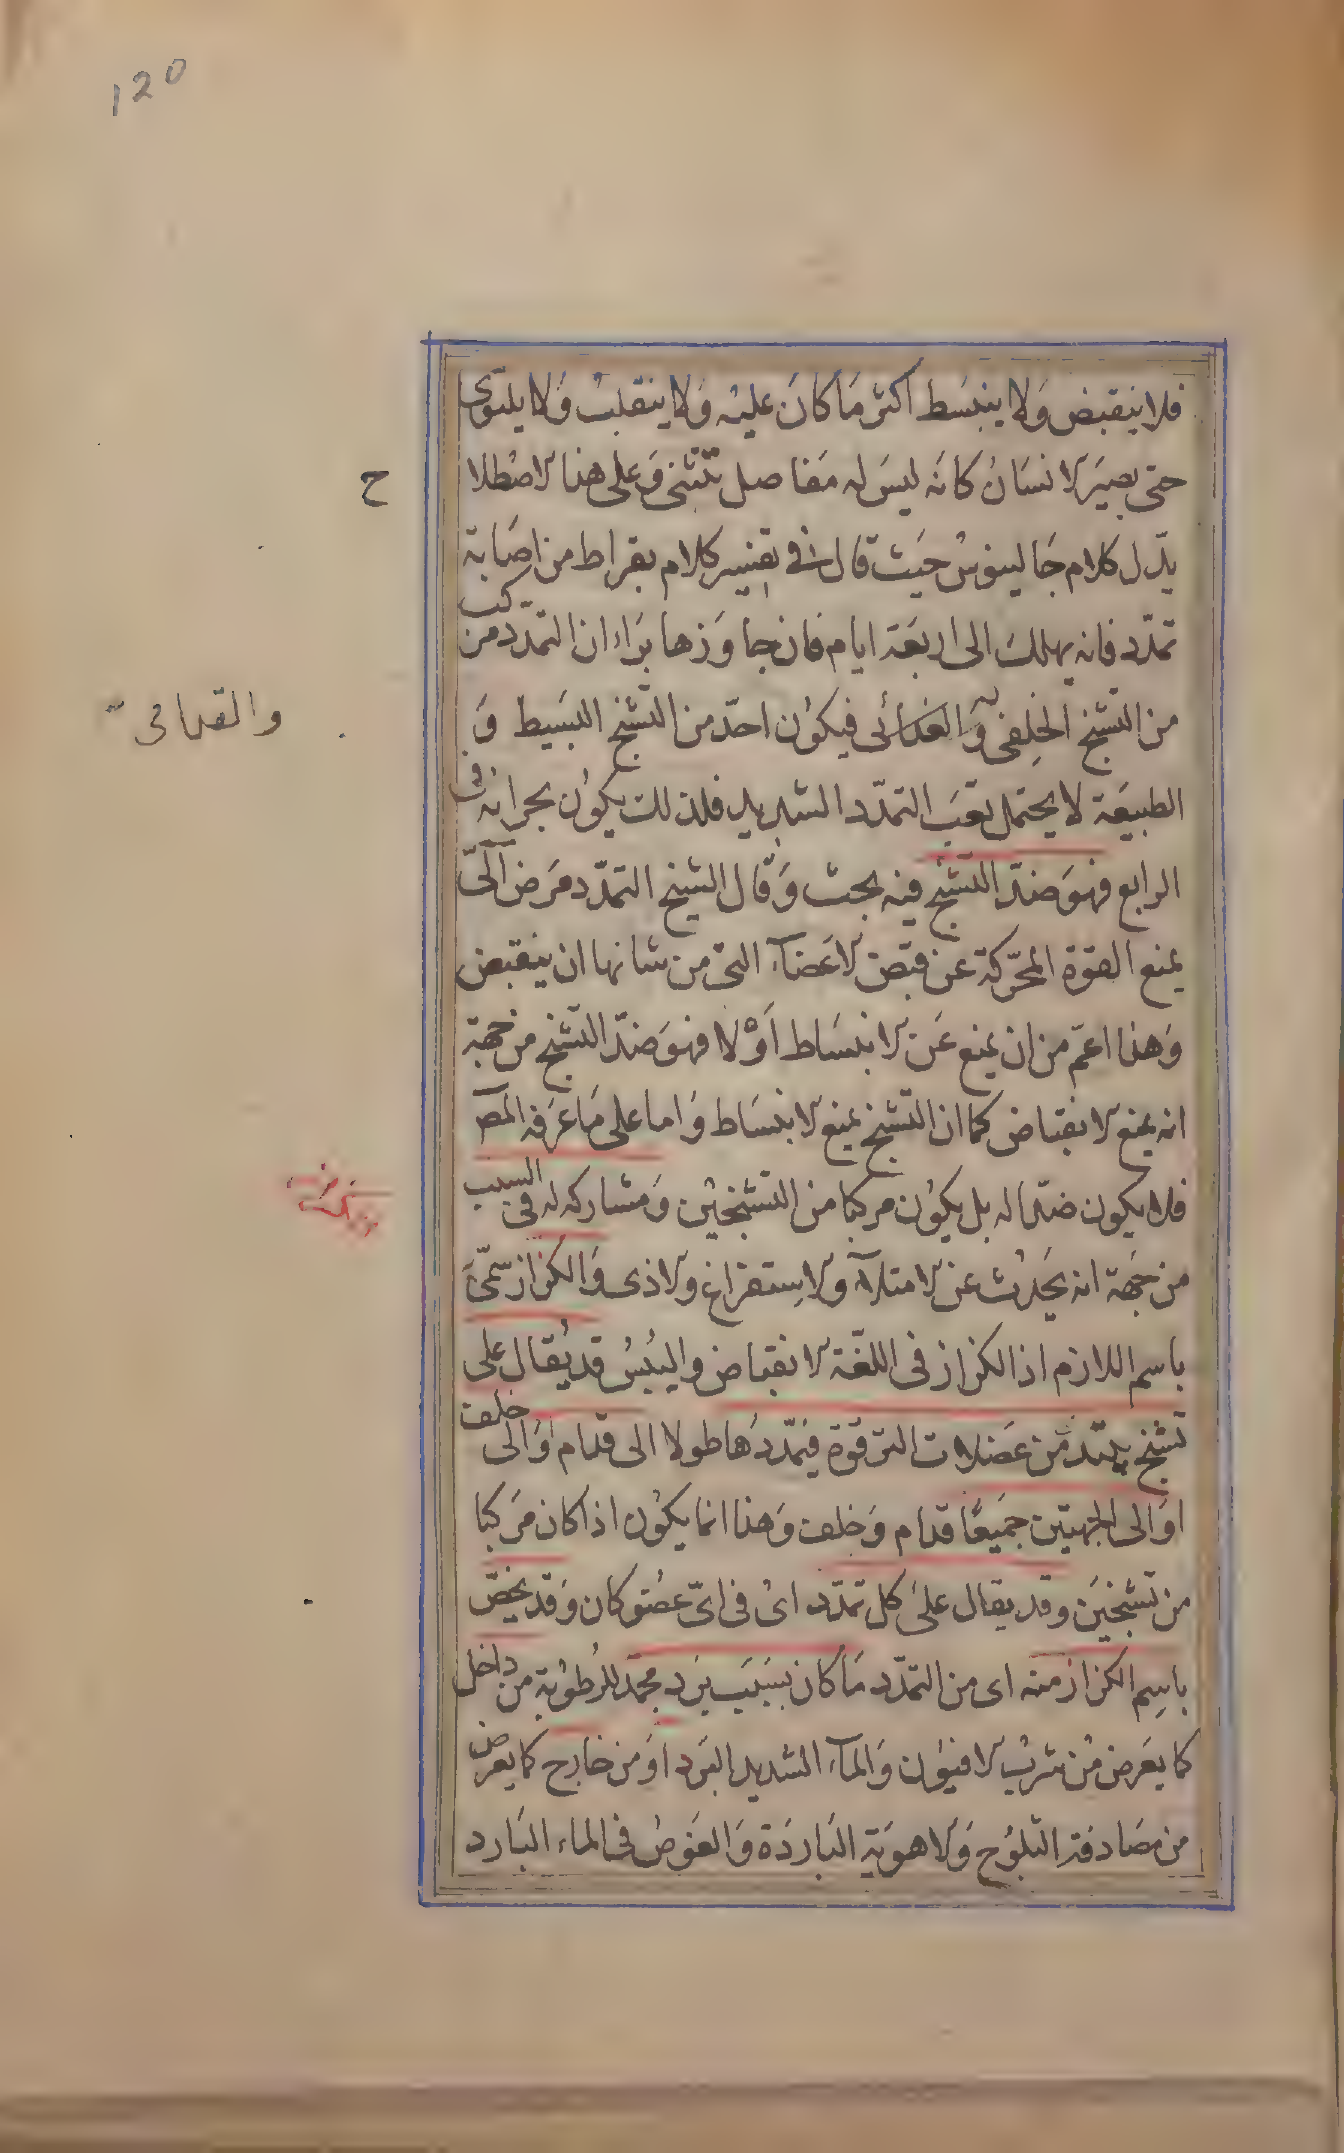 120
فلا ينقبض ولا ينبسط اكثر ما كان عليه ولا ينقلب ولا يلتوى
حتى يصير الانسان كانه ليس له مفاصل تثنى وعلى هذا الاصطلا
ح
يدل كلام جالينوس حيث قال فى تفسير كلام بقراط من اصابه
تمدد فانه يهلك الى اربعة ايام فان جاوزها براء ان التمدد مركب من
من التشنج الخلفى والغدائى فيكون احد من التشنج البسيط و
والقدامى
الطبيعة لا يحتمل تعب التمدد الشديد فلذلك يكون بحرانه فى
الرابع فهو ضد التشنج فيه بحث وقال الشيخ التمدد مرض آلى
يمنع القوة المحركة عن قبض الاعضاء التى من شانها ان ينقبض
وهذا اعم من ان يمنع عن الانبساط اولا فهو ضد التشنج من جهة
انه يمنع الانقباض كما ان التشنج يمنع الانبساط واما على ما عرفه المص
فلا يكون ضدا له بل يكون مركبا من التشنجين ومشاركه له فى السبب
من جهة انه يحدث عن الامتلاء والاستفراغ والاذى والكزاز سمى
باسم اللازم اذ الكزاز فى اللغة الانقباض واليبس قد يقال على
تشنج يبتد من عضلات الترقوة فيمددها طولا الى قدام او الى خلف
او الى الجهتين جميعا قدام وخلف وهذا انما يكون اذا كان مركبا
من تشنجين وقد يقال على كل تمدد اى فى اى عضو كان وقد يخص
باسم الكزاز منه اى من التمدد ما كان بسبب برد مجمد للرطوبة من داخل
كما يعرض من شرب الافيون والماء الشديد البرد او من خارج كما يعرض
من مصادفة الثلوج والاهوية الباردة والغوص فى الماء البارد